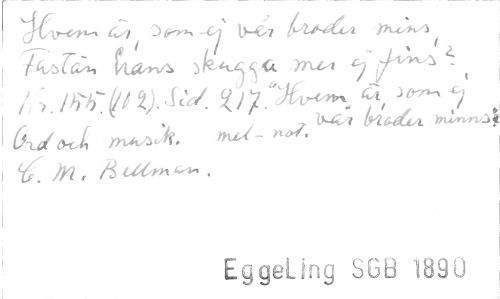 Hvem är, som ej vår broder mins,
Fastän hans skugga mer ej fins?
Nr. 155. (102). Sid. 217. "Hvem är, som ej
vår broder minns?
Ord och musik. mel-not.
C. M. Bellman.
EggeLing SGB 1890